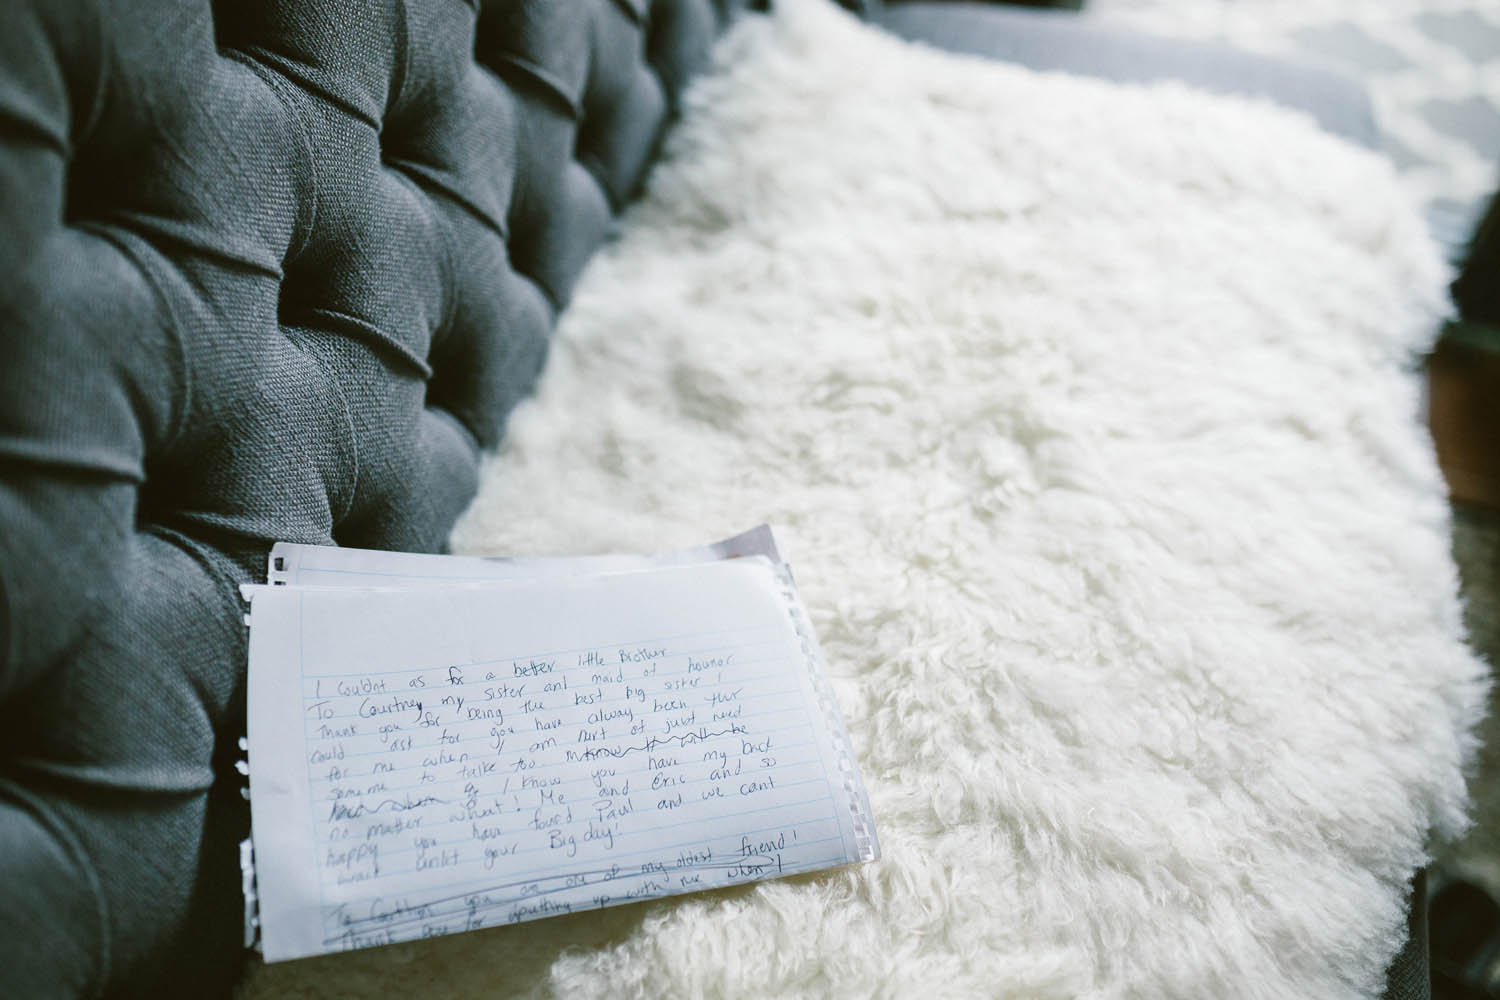 I Couldnt as for a better little Brother
To Courtney my sister and maid of hounor
Thank you for being the best big sister I
could ask for you have alway been ther
for me when I am hurt of just need
someme to talk too know it will be
I know you have my back
no matter what! Me and Eric and so
happy you have found Paul and we cant
wait untlet your Big day!
To you an one of my oldest friend!
Thank you for putting up with me when I